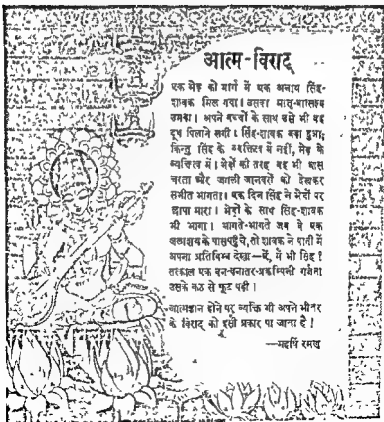 आत्म-विराट्
एक भेड़ को मार्ग में एक अनाथ सिंह-
शावक मिल गया। उसका मातृ-वात्सल्य
उमड़ा। अपने बच्चों के साथ उसे भी वह
दूध पिलाने लगी। सिंह-शावक बड़ा हुआ,
किन्तु सिंह के व्यक्तित्व में नहीं, भेड़ के
व्यक्तित्व में। भेड़ों की तरह वह भी घास
चरता और जंगली जानवरों को देखकर
सभीत भागता। एक दिन सिंह ने भेड़ों पर
छापा मारा। भेड़ों के साथ सिंह-शावक
भी भागा। भागते-भागते जब वे एक
जलाशय के पास पहुँचे, तो शावक ने पानी में
अपना प्रतिबिम्ब देखा—हैं, मैं भी सिंह!
तत्काल एक वन-वनान्तर-प्रकम्पिनी गर्जना
उसके कंठ से फूट पड़ी।
आत्मज्ञान होने पर व्यक्ति भी अपने भीतर
के विराट् को इसी प्रकार पा जाता है!
—महर्षि रमण